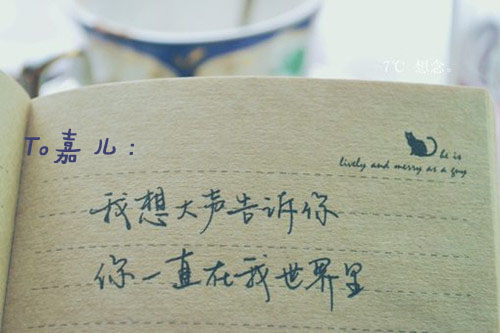 -7℃ 想念。
To。嘉儿：
he is
lively and merry as a guy
我想大声告诉你
你一直在我世界里